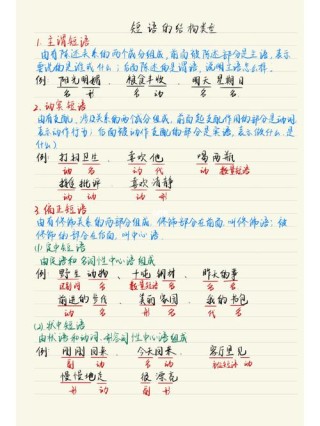 短语的结构类型
1. 主谓短语
由有陈述关系的两个成分组成,前面被陈述部分是主语,表示
要说的是谁或什么;后面陈述的是谓语,说明主语怎么样。
例: 阳光明媚、粮食丰收、明天星期日
名 形 名 动 名 名
2. 动宾短语
由有支配、涉及关系的两个成分组成,前面起支配作用的部分是动语
表示动作行为;后面被动作支配的部分是宾语,表示做什么、是
什么
例: 打扫卫生、喜欢他、喝两瓶
动 名 动 代 动 数量短语
接受批评、喜欢清静
动 动 动 形
3. 偏正短语
由有修饰关系的两部分组成,修饰部分在前面,叫修饰语;被
修饰的部分在后面,叫中心语。
(1) 定中短语
由定语和名词性中心语组成
例: 野生动物、千吨钢材、昨天的事
名 数量短语 名 名 名
前进的步伐、美丽家园、我的书包
动 名 形 名 代 名
(2) 状中短语
由状语和动词、形容词性中心语组成
例: 刚刚回来、今天回来、客厅里见
副 动 名 动 动
慢慢地走、很漂亮
形 动 副 形